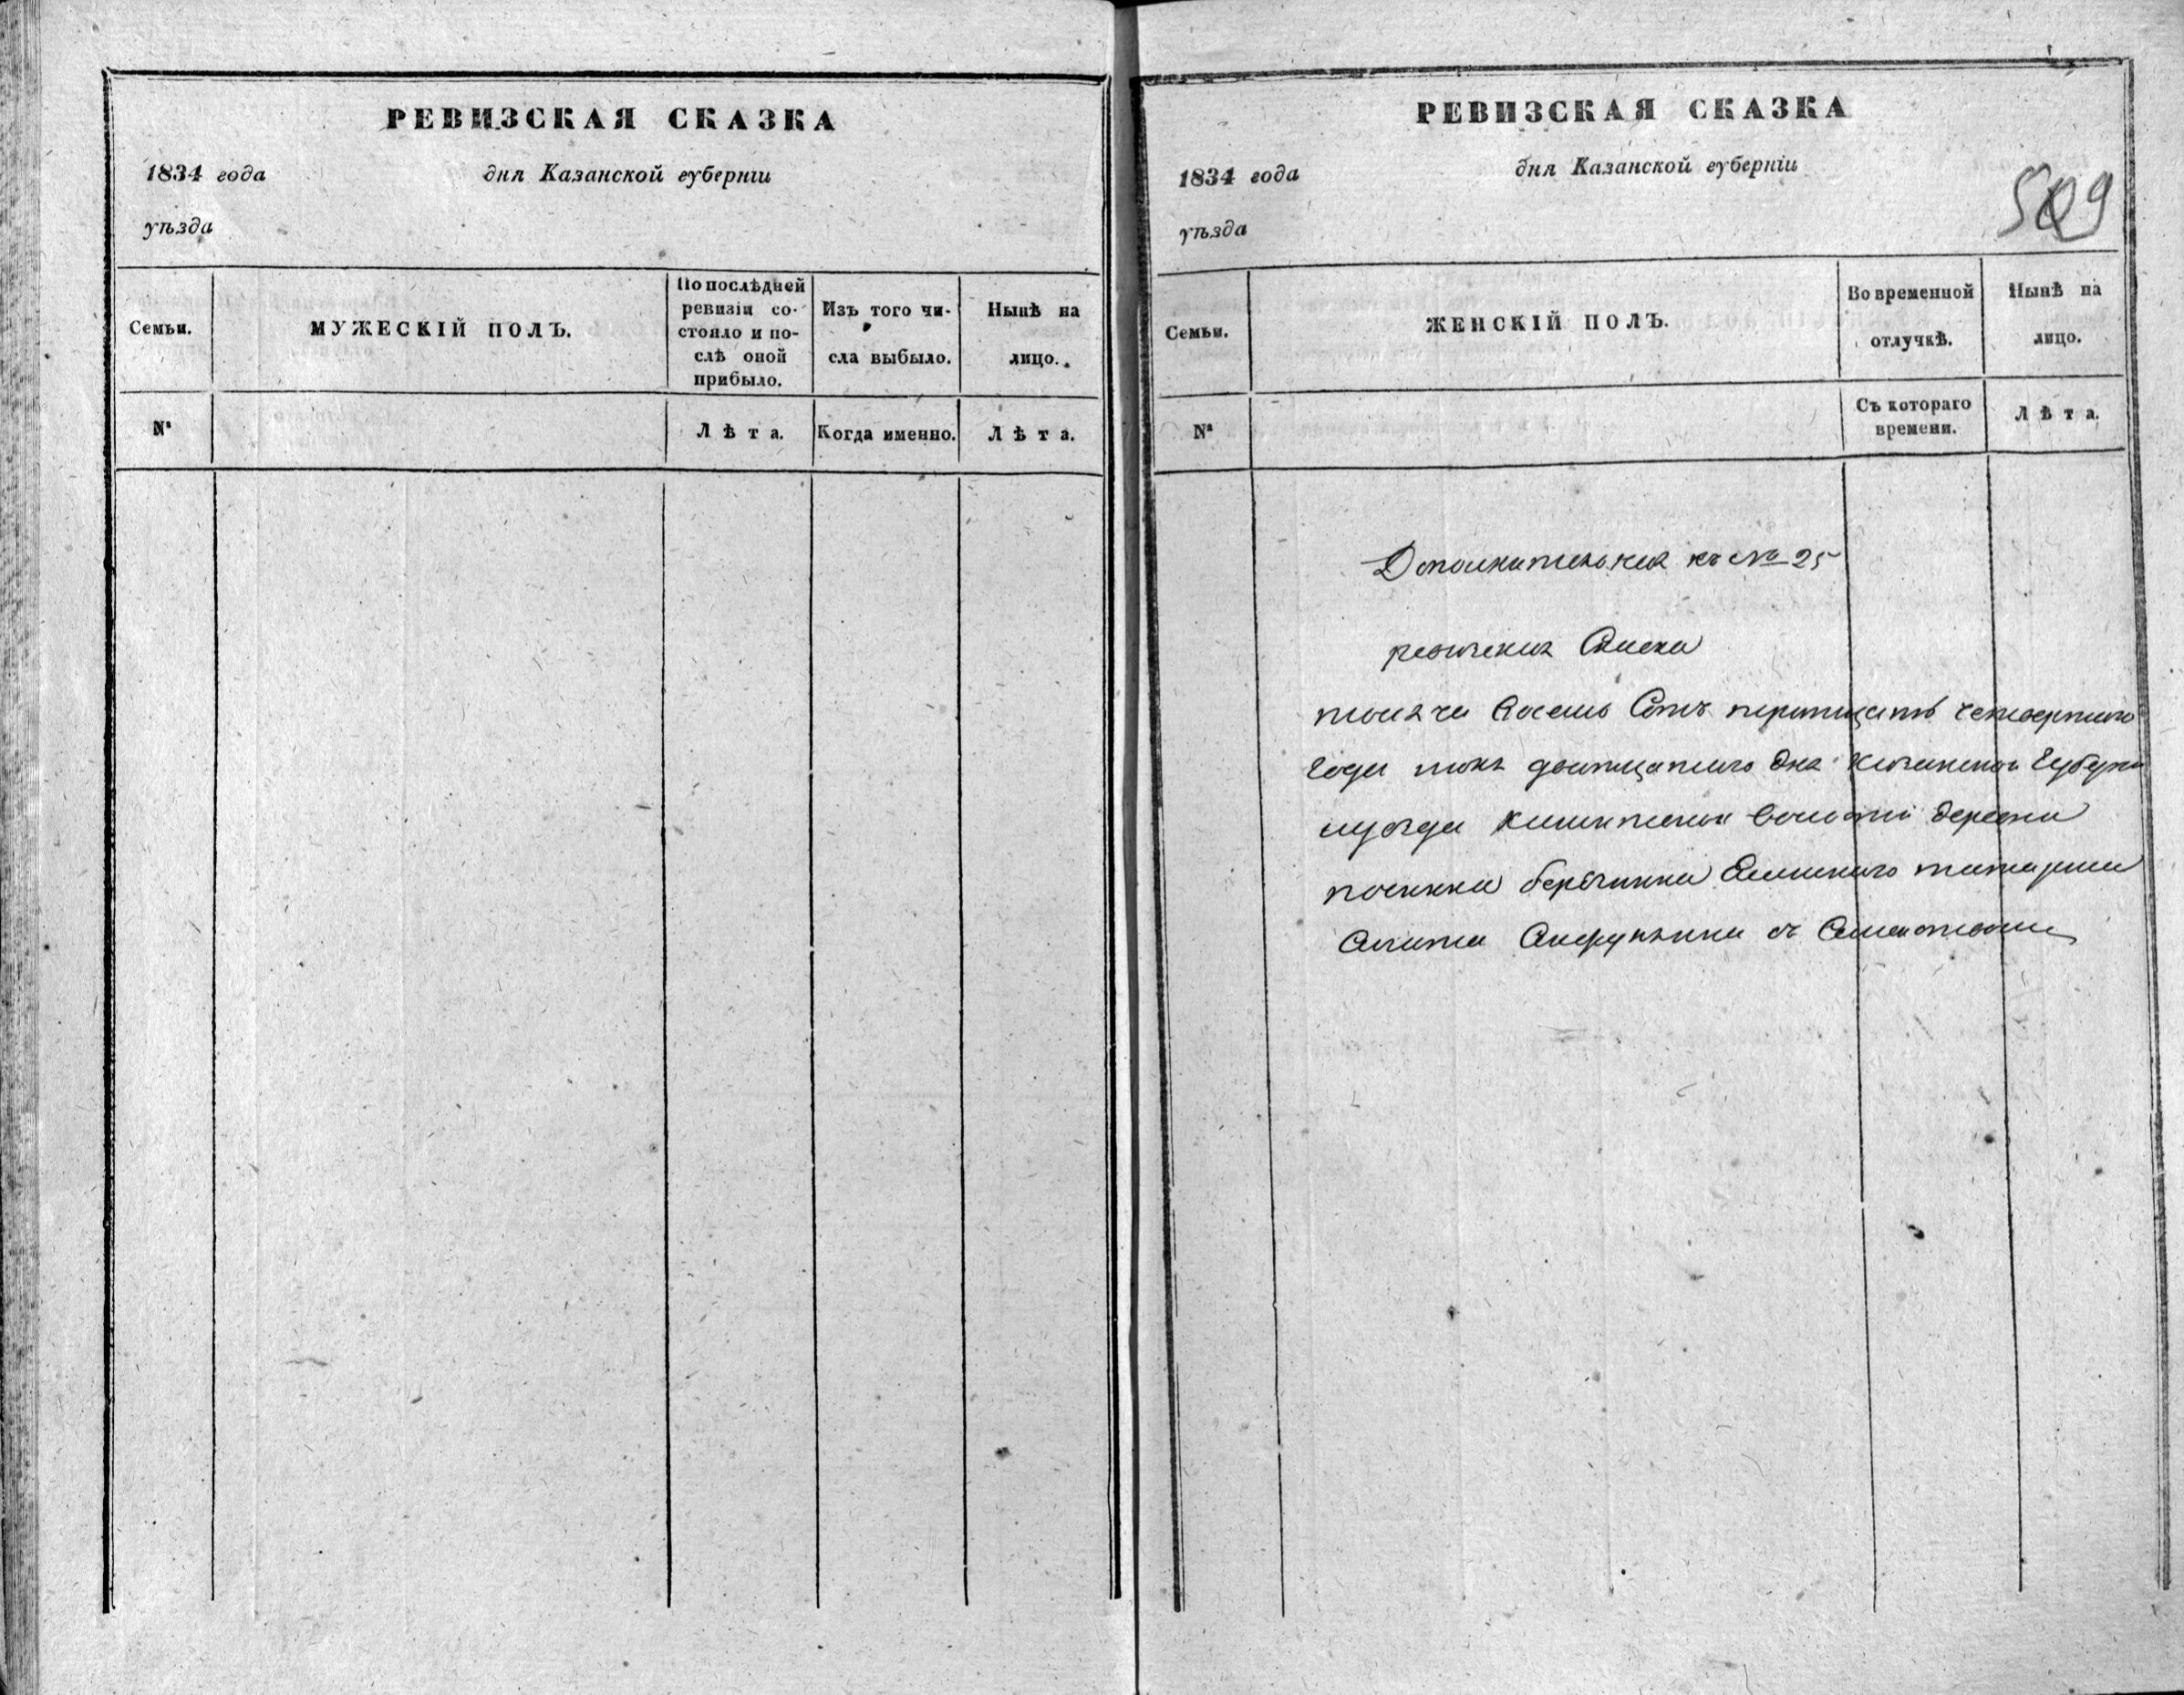 РЕВИЗСКАЯ СКАЗКА
1834 года дня Казанской губернiи
уѣзда
Семьи.
МУЖЕСКIЙ ПОЛЪ.
По послѣдней ревизiи со-
стояло и по-
слѣ оной
прибыло.
Изъ того чи-
сла выбыло.
Нынѣ на
лицо.
№
Лѣта.
Когда именно.
Лѣта.
РЕВИЗСКАЯ СКАЗКА
1834 года дня Казанской губернiи
уѣзда
509
Семьи.
ЖЕНСКIЙ ПОЛЪ.
Во временной
отлучкѣ.
Нынѣ на
лицо.
№
Съ котораго
времени.
Лѣта.
Дополнительная къ № 25
ревизская Сказка
тысяча восемь Сотъ тритцать четвертаго
Года маия дватцатаго дня Казанской Губерни
уѣзда волости деревни
починка татарина